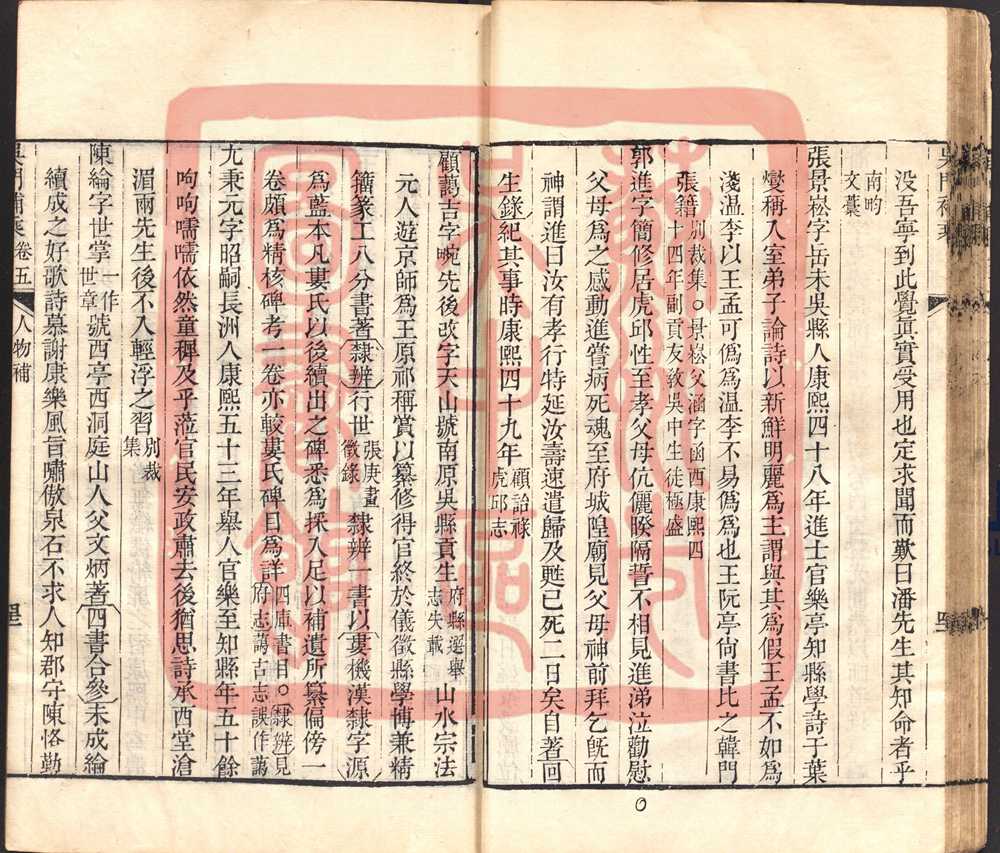 没吾寧到此覺真實受用也定求聞而歎曰潘先生其知命者乎
南畇文藁
張景崧字岳未吳縣人康熙四十八年進士官樂亭知縣學詩于葉
燮稱入室弟子論詩以新鮮明麗爲主謂與其爲假王孟不如爲
淺温李以王孟可僞爲温李不易僞爲也王阮亭尙書比之韓門
張籍别裁集○景崧父涵字函西康熙四十四年副貢友敎吳中生徒極盛
郭進字簡修居虎邱性至孝父母伉儷睽隔誓不相見進涕泣勸慰
父母爲之感動進嘗病死魂至府城隍廟見父母神前拜乞旣而
神謂進曰汝有孝行特延汝壽速遣歸及甦已死二日矣自著回
生錄紀其事時康熙四十九年顧詒祿虎邱志
顧藹吉字畹先後改字天山號南原吳縣貢生府縣選舉志失載山水宗法
元人遊京師爲王原祁稱賞以纂修得官終於儀徵縣學博兼精
籀篆工八分書著隸辨行世張庚畫徵錄隸辨一書以婁機漢隸字源
爲藍本凡婁氏以後續出之碑悉爲採入足以補遺所纂偏傍一
卷頗爲精核碑考一卷亦較婁氏碑目爲詳四庫書目○隸辨見府志藹吉志誤作藹
尤秉元字昭嗣長洲人康熙五十三年舉人官樂至知縣年五十餘
呴呴嚅嚅依然童穉及乎蒞官民安政肅去後猶思詩承西堂滄
湄兩先生後不入輕浮之習别裁集
陳綸字世掌一作世章號西亭西洞庭山人父文炳著四書合參未成綸
續成之好歌詩慕謝康樂風旨嘯傲泉石不求人知郡守陳恪勤
卷五
人物補